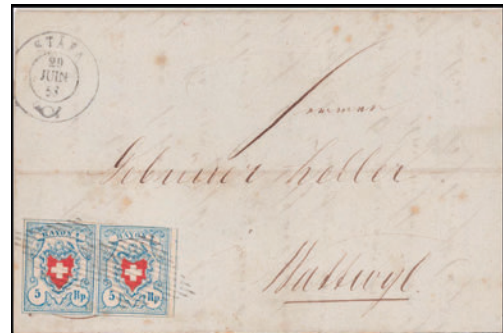 STÄFA
29
JUIN
53
Gebrüder Keller
Wattwyl.
RAYON I. RAYON I.
5 Rp. 5 Rp.